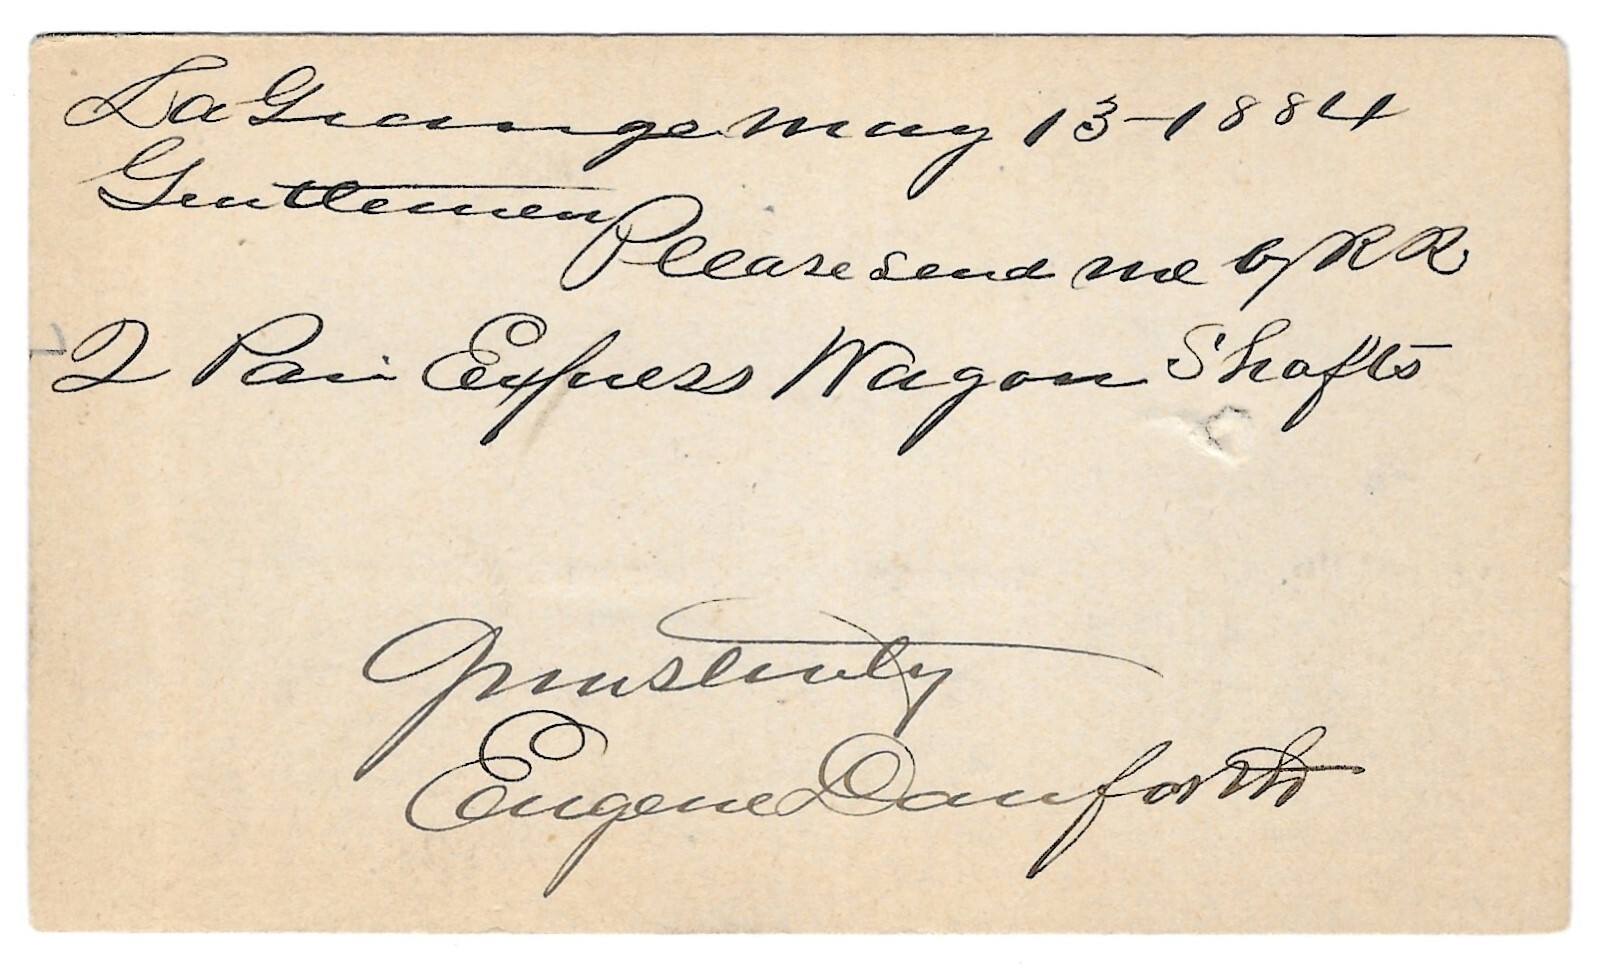 LaGrange May 13-1884
Gentlemen
Please send me by RR
2 Pair Express Wagon Shafts
Yours truly
Eugene Danforth